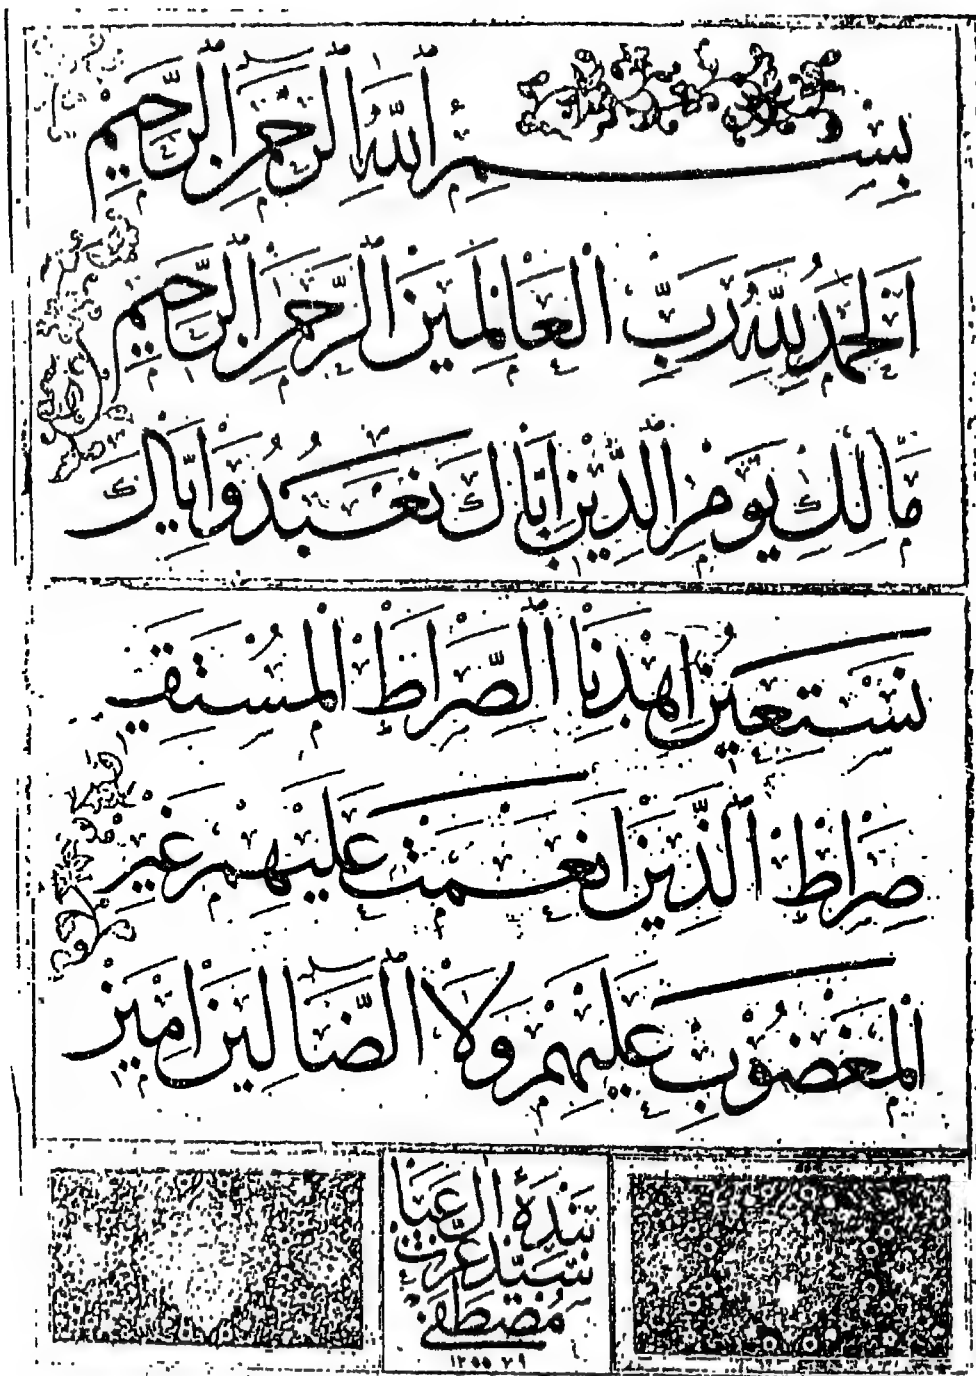 بِسْمِ اللّٰهِ الرَّحْمٰنِ الرَّحِيمِ
اَلْحَمْدُ لِلّٰهِ رَبِّ الْعَالَمِينَ الرَّحْمٰنِ الرَّحِيمِ
مَالِكِ يَوْمِ الدِّينِ اِيَّاكَ نَعْبُدُ وَاِيَّاكَ
نَسْتَعِينُ اِهْدِنَا الصِّرَاطَ الْمُسْتَقِيمَ
صِرَاطَ الَّذِينَ اَنْعَمْتَ عَلَيْهِمْ غَيْرِ
الْمَغْضُوبِ عَلَيْهِمْ وَلَا الضَّالِّينَ اٰمِينَ
بَنْدَهٔ اٰلِ عَبَا
سَيِّد عِزَّت
مُصْطَفَى
١٢٥٥ ٢٩